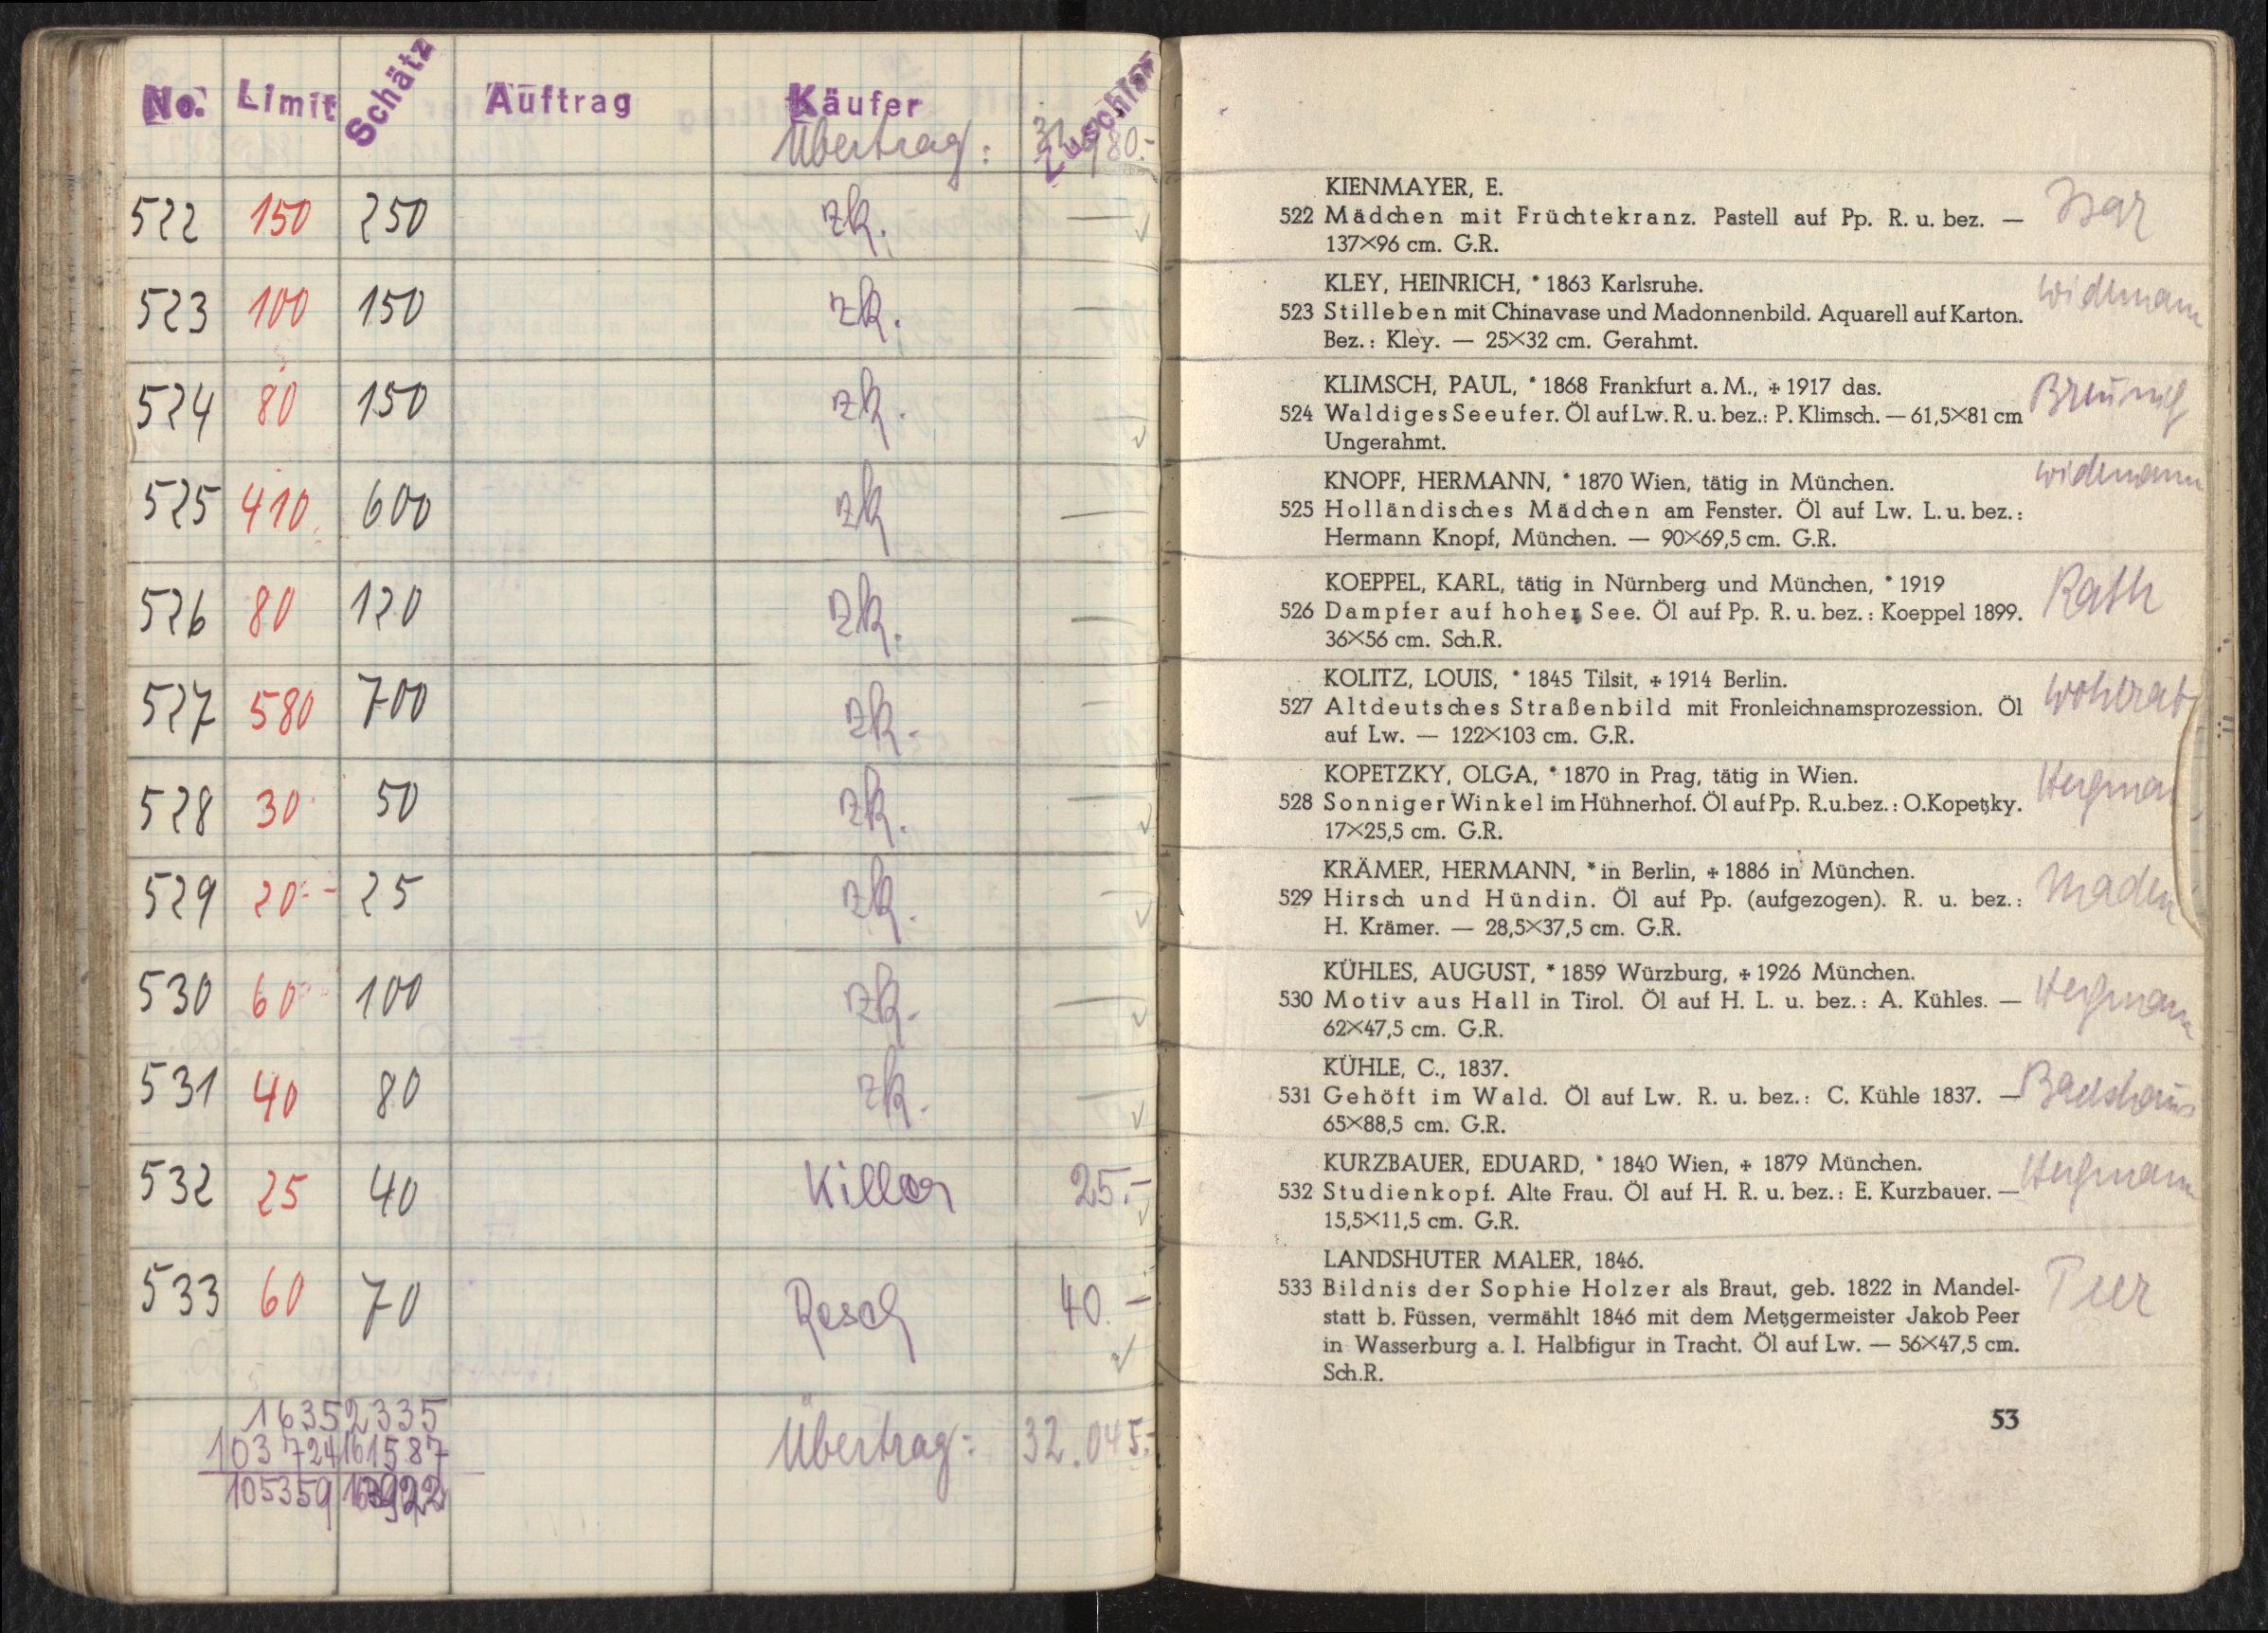 No. Limit Schätz Auftrag Käufer Zuschlag
Übertrag: 80.-
522 150 250 zk. —
523 100 150 zk. —
524 80 150 zk.
525 410 600 zk —
526 80 120 zk. —
527 580 700 zk. —
528 30 50 zk. —
529 20.- 25 zk. —
530 60 100 zk. —
531 40 80 zk. —
532 25 40 Killer 25.-
533 60 70 Resch 40.-
1635 2335
103724 161587
105359
Übertrag: 32.045.-
KIENMAYER, E.
522 Mädchen mit Früchtekranz. Pastell auf Pp. R. u. bez. — Isar
137×96 cm. G.R.
KLEY, HEINRICH, * 1863 Karlsruhe.
523 Stilleben mit Chinavase und Madonnenbild. Aquarell auf Karton. Widemann
Bez.: Kley. — 25×32 cm. Gerahmt.
KLIMSCH, PAUL, * 1868 Frankfurt a. M., + 1917 das.
524 Waldiges Seeufer. Öl auf Lw. R. u. bez.: P. Klimsch. — 61,5×81 cm
Ungerahmt.
KNOPF, HERMANN, * 1870 Wien, tätig in München. Widemann
525 Holländisches Mädchen am Fenster. Öl auf Lw. L. u. bez.:
Hermann Knopf, München. — 90×69,5 cm. G.R.
KOEPPEL, KARL, tätig in Nürnberg und München, * 1919 Rath
526 Dampfer auf hoher See. Öl auf Pp. R. u. bez.: Koeppel 1899.
36×56 cm. Sch.R.
KOLITZ, LOUIS, * 1845 Tilsit, + 1914 Berlin.
527 Altdeutsches Straßenbild mit Fronleichnamsprozession. Öl Wohlrab
auf Lw. — 122×103 cm. G.R.
KOPETZKY, OLGA, * 1870 in Prag, tätig in Wien.
528 Sonniger Winkel im Hühnerhof. Öl auf Pp. R.u.bez.: O.Kopetzky.
17×25,5 cm. G.R.
KRÄMER, HERMANN, * in Berlin, + 1886 in München.
529 Hirsch und Hündin. Öl auf Pp. (aufgezogen). R. u. bez.:
H. Krämer. — 28,5×37,5 cm. G.R.
KÜHLES, AUGUST, * 1859 Würzburg, + 1926 München.
530 Motiv aus Hall in Tirol. Öl auf H. L. u. bez.: A. Kühles. —
62×47,5 cm. G.R.
KÜHLE, C., 1837.
531 Gehöft im Wald. Öl auf Lw. R. u. bez.: C. Kühle 1837. —
65×88,5 cm. G.R.
KURZBAUER, EDUARD, * 1840 Wien, + 1879 München.
532 Studienkopf. Alte Frau. Öl auf H. R. u. bez.: E. Kurzbauer. —
15,5×11,5 cm. G.R.
LANDSHUTER MALER, 1846.
533 Bildnis der Sophie Holzer als Braut, geb. 1822 in Mandel- Peer
statt b. Füssen, vermählt 1846 mit dem Metzgermeister Jakob Peer
in Wasserburg a. I. Halbfigur in Tracht. Öl auf Lw. — 56×47,5 cm.
Sch.R.
53